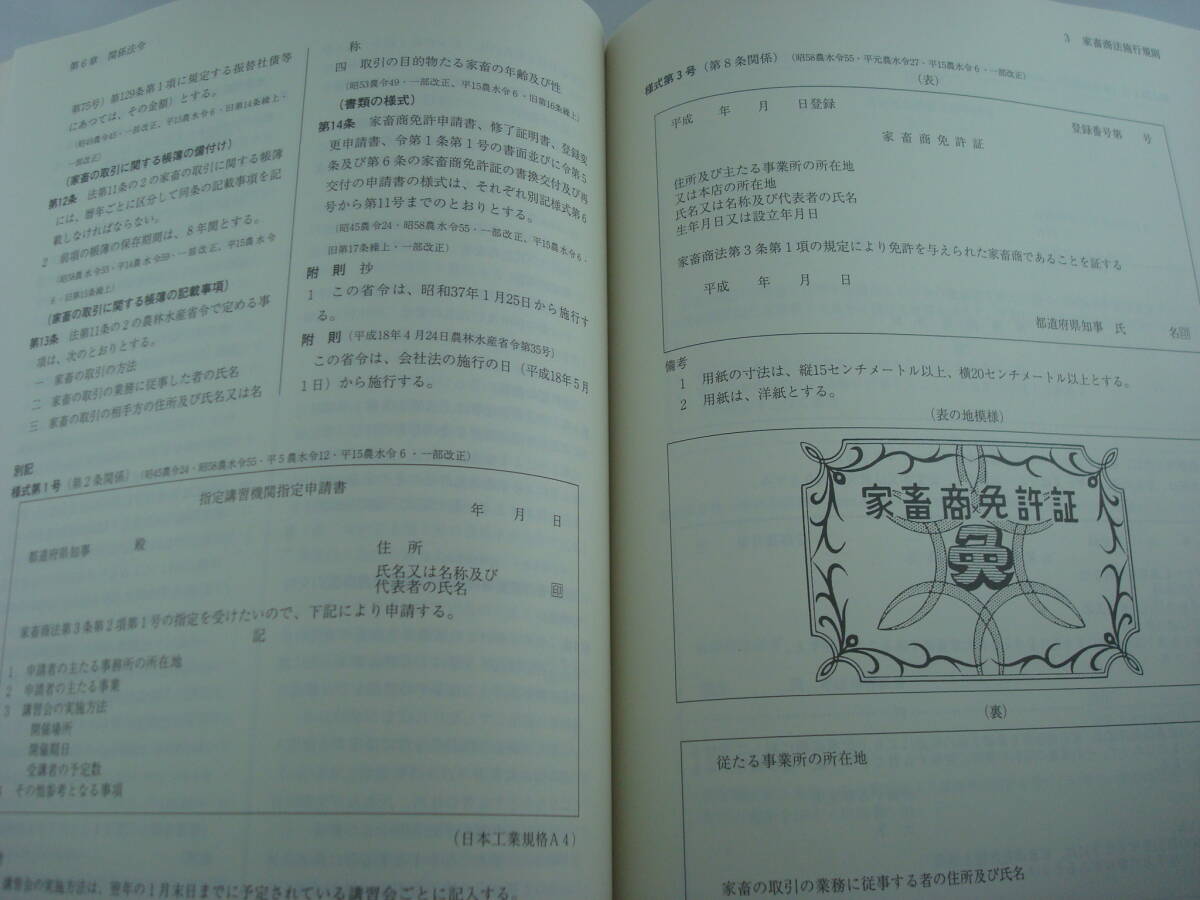 第6章 関係法令
第75号）第129条第1項に規定する振替社債等
にあつては、その金額）とする。
（昭49農令45・一部改正、平15農水令6・旧第14条繰上・
一部改正）
（家畜の取引に関する帳簿の備付け）
第12条 法第11条の2の家畜の取引に関する帳簿
には、暦年ごとに区分して同条の記載事項を記
載しなければならない。
2 前項の帳簿の保存期間は、8年間とする。
（昭58農水令55・平14農水令59・一部改正、平15農水令
6・旧第15条繰上）
（家畜の取引に関する帳簿の記載事項）
第13条 法第11条の2の農林水産省令で定める事
項は、次のとおりとする。
一 家畜の取引の方法
二 家畜の取引の業務に従事した者の氏名
三 家畜の取引の相手方の住所及び氏名又は名
称
四 取引の目的物たる家畜の年齢及び性
（昭53農令49・一部改正、平15農水令6・旧第16条繰上）
（書類の様式）
第14条 家畜商免許申請書、修了証明書、登録変
更申請書、令第1条第1号の書面並びに令第5
条及び第6条の家畜商免許証の書換交付及び再
交付の申請書の様式は、それぞれ別記様式第6
号から第11号までのとおりとする。
（昭45農令24・昭58農水令55・一部改正、平15農水令6・
旧第17条繰上・一部改正）
附 則 抄
1 この省令は、昭和37年1月25日から施行す
る。
附 則 （平成18年4月24日農林水産省令第35号）
この省令は、会社法の施行の日（平成18年5月
1日）から施行する。
別記
様式第1号（第2条関係）（昭45農令24・昭58農水令55・平5農水令12・平15農水令6・一部改正）
指定講習機関指定申請書
年 月 日
都道府県知事 殿
住 所
氏名又は名称及び
代表者の氏名 印
家畜商法第3条第2項第1号の指定を受けたいので、下記により申請する。
記
1 申請者の主たる事務所の所在地
2 申請者の主たる事業
3 講習会の実施方法
開催場所
開催期日
受講者の予定数
その他参考となる事項
（日本工業規格A4）
講習会の実施方法は、翌年の1月末日までに予定されている講習会ごとに記入する。
3 家畜商法施行規則
様式第3号（第8条関係）（昭58農水令55・平元農水令27・平15農水令6・一部改正）
（表）
平成 年 月 日登録
登録番号第 号
家畜商免許証
住所及び主たる事業所の所在地
又は本店の所在地
氏名又は名称及び代表者の氏名
生年月日又は設立年月日
家畜商法第3条第1項の規定により免許を与えられた家畜商であることを証する
平成 年 月 日
都道府県知事 氏 名印
備考
1 用紙の寸法は、縦15センチメートル以上、横20センチメートル以上とする。
2 用紙は、洋紙とする。
（表の地模様）
家畜商免許証
（裏）
従たる事業所の所在地
家畜の取引の業務に従事する者の住所及び氏名